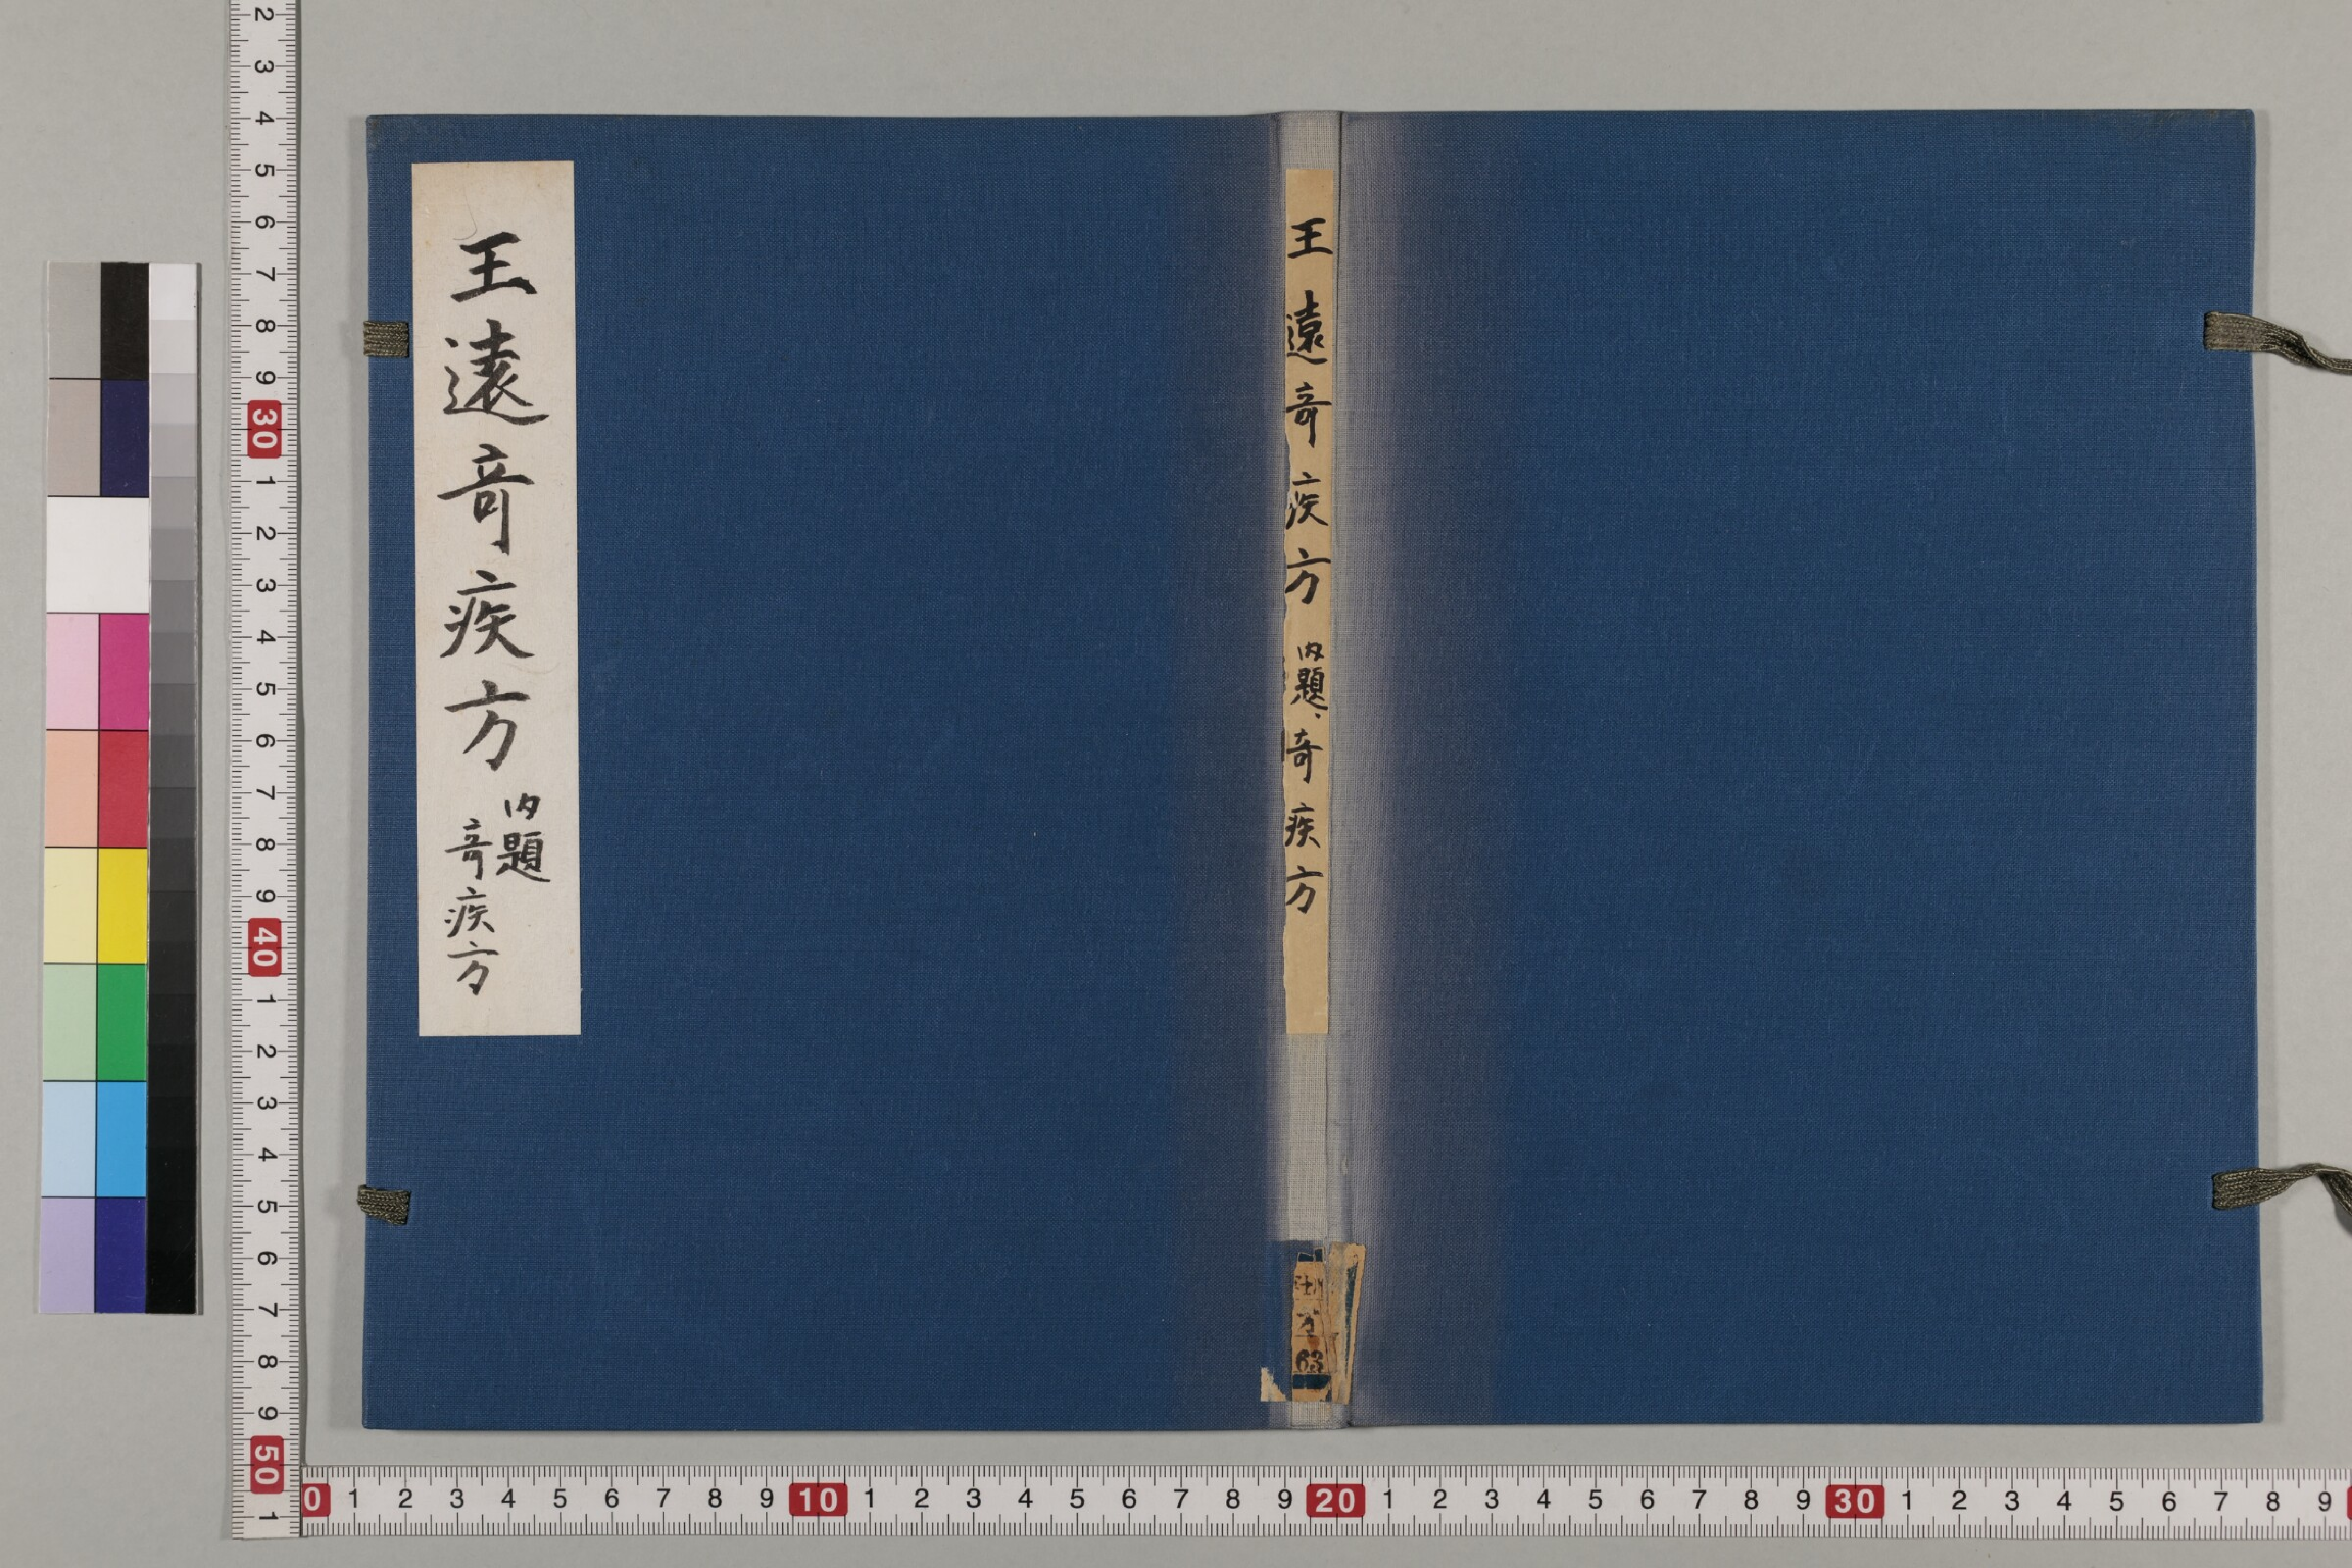 王遠竒疾方
内題
竒疾方
王遠竒疾方 内題、奇疾方
方
63
2 3 4 5 6 7 8 9 30 1 2 3 4 5 6 7 8 9 40 1 2 3 4 5 6 7 8 9 50 1
0 1 2 3 4 5 6 7 8 9 10 1 2 3 4 5 6 7 8 9 20 1 2 3 4 5 6 7 8 9 30 1 2 3 4 5 6 7 8 9